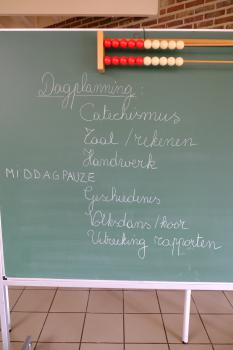 Dagplanning:
Catechismus
Taal / rekenen
Handwerk
MIDDAGPAUZE
Geschiedenis
Volksdans/koor
Uitreiking rapporten